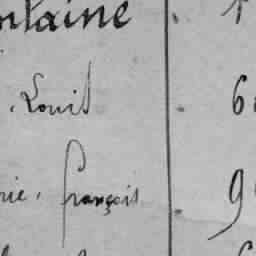 ntaine
, Louis 6
rie, françois 9